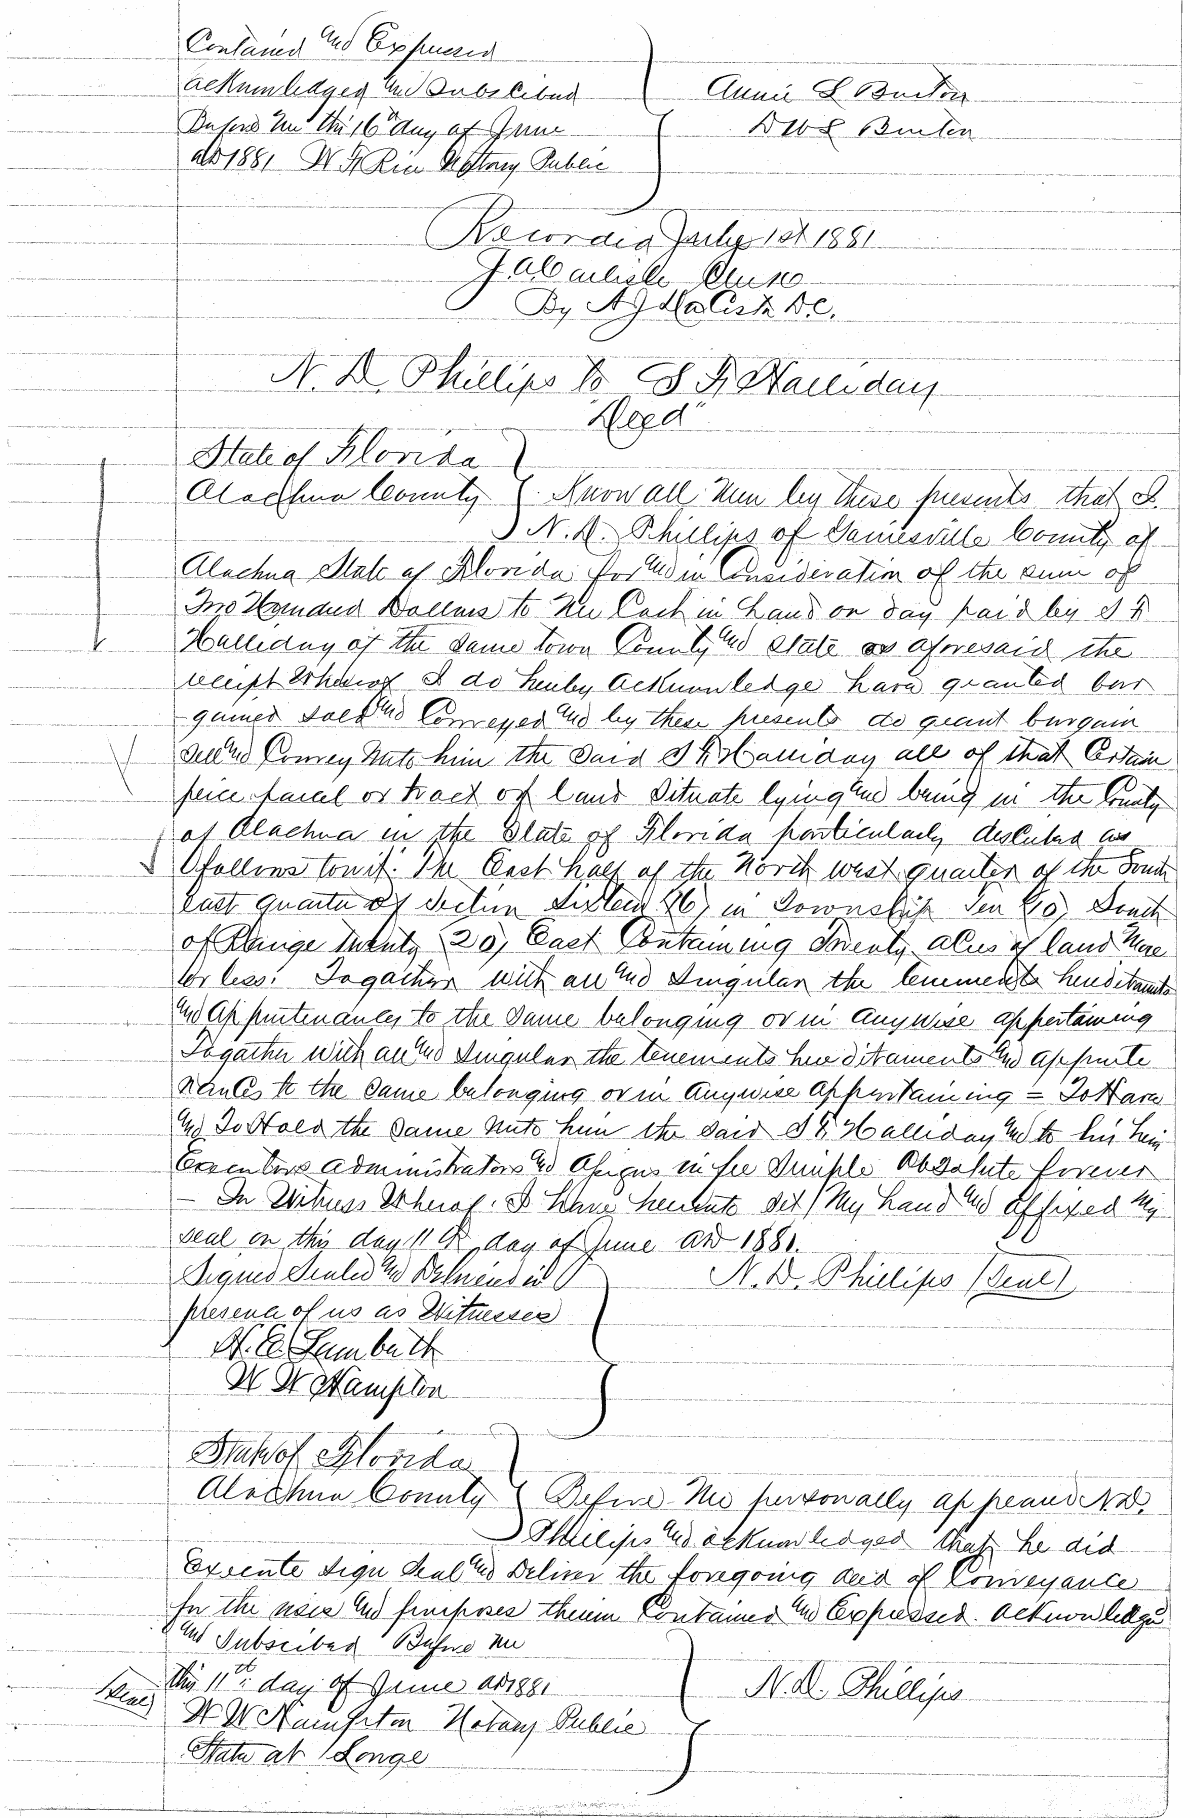 Contained and Expressed
acknowledged and Subscribed
Before me this 16th day of June
AD 1881 W F Rice Notary Public
Annie L Burton
D W L Burton
Recorded July 1st 1881
J A Carlisle Clerk
By A J D.C.
N. D. Phillips to S F Halliday
"Deed"
State of Florida
Alachua County Know all men by these presents that I.
N. D. Phillips of Gainesville County of
Alachua State of Florida for and in Consideration of the sum of
Two Hundred Dollars to me Cash in hand on day paid by S F
Halliday of the same town County and State as aforesaid the
receipt Whereof I do hereby acknowledge have granted bar
gained sold and Conveyed and by these presents do grant bargain
sell and Convey unto him the said S F Halliday all of that Certain
peice parcel or tract of land Situate lying and being in the County
of Alachua in the State of Florida particularly described as
follows towit: The East half of the North west quarter of the South
East quarter of Section Sixteen (16) in Township Ten (10) South
of Range Twenty (20) East Containing Twenty acres of land more
or less: Togather with all and Singular the tenements hereditaments
and appurtenances to the same belonging or in anywise appertaining
Togather with all and Singular the tenements hereditaments and appurte
nances to the same belonging or in anywise appurtaining = To Have
and To Hold the same unto him the said S F Halliday and to his heirs
Executors administrators and assigns in fee Simple absolute forever
— In Witness Whereof. I have hereunto set my hand and affixed my
seal on this day 11th day of June AD 1881.
Signed Sealed and Delivered in
presence of us as Witnesses
N. D. Phillips (Seal)
H. C. Lambeth
W W Hampton
State of Florida
Alachua County Before me personally appeared N.D.
Phillips and acknowledged that he did
Execute sign seal and Deliver the foregoing deed of Conveyance
for the uses and purposes therein Contained and Expressed. acknowledged
and Subscribed Before me
this 11th day of June AD 1881
Seal
N. D. Phillips
W W Hampton Notary Public
State at Large